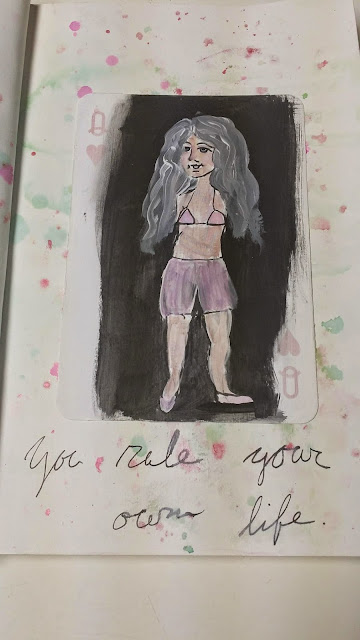 Q
You rule your
own life.
Q